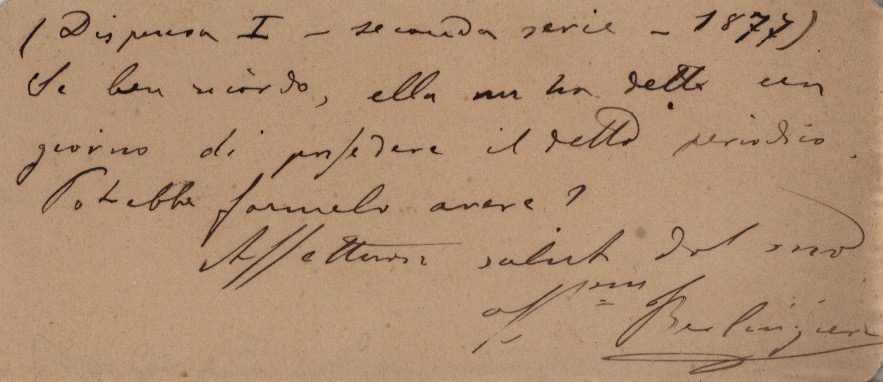 (Dispensa I – seconda serie – 1877)
Se ben ricordo, ella mi ha detto un
giorno di possedere il detto periodico.
Potrebbe farmelo avere?
Affettuosi saluti dal suo
aff.mo Berlingieri